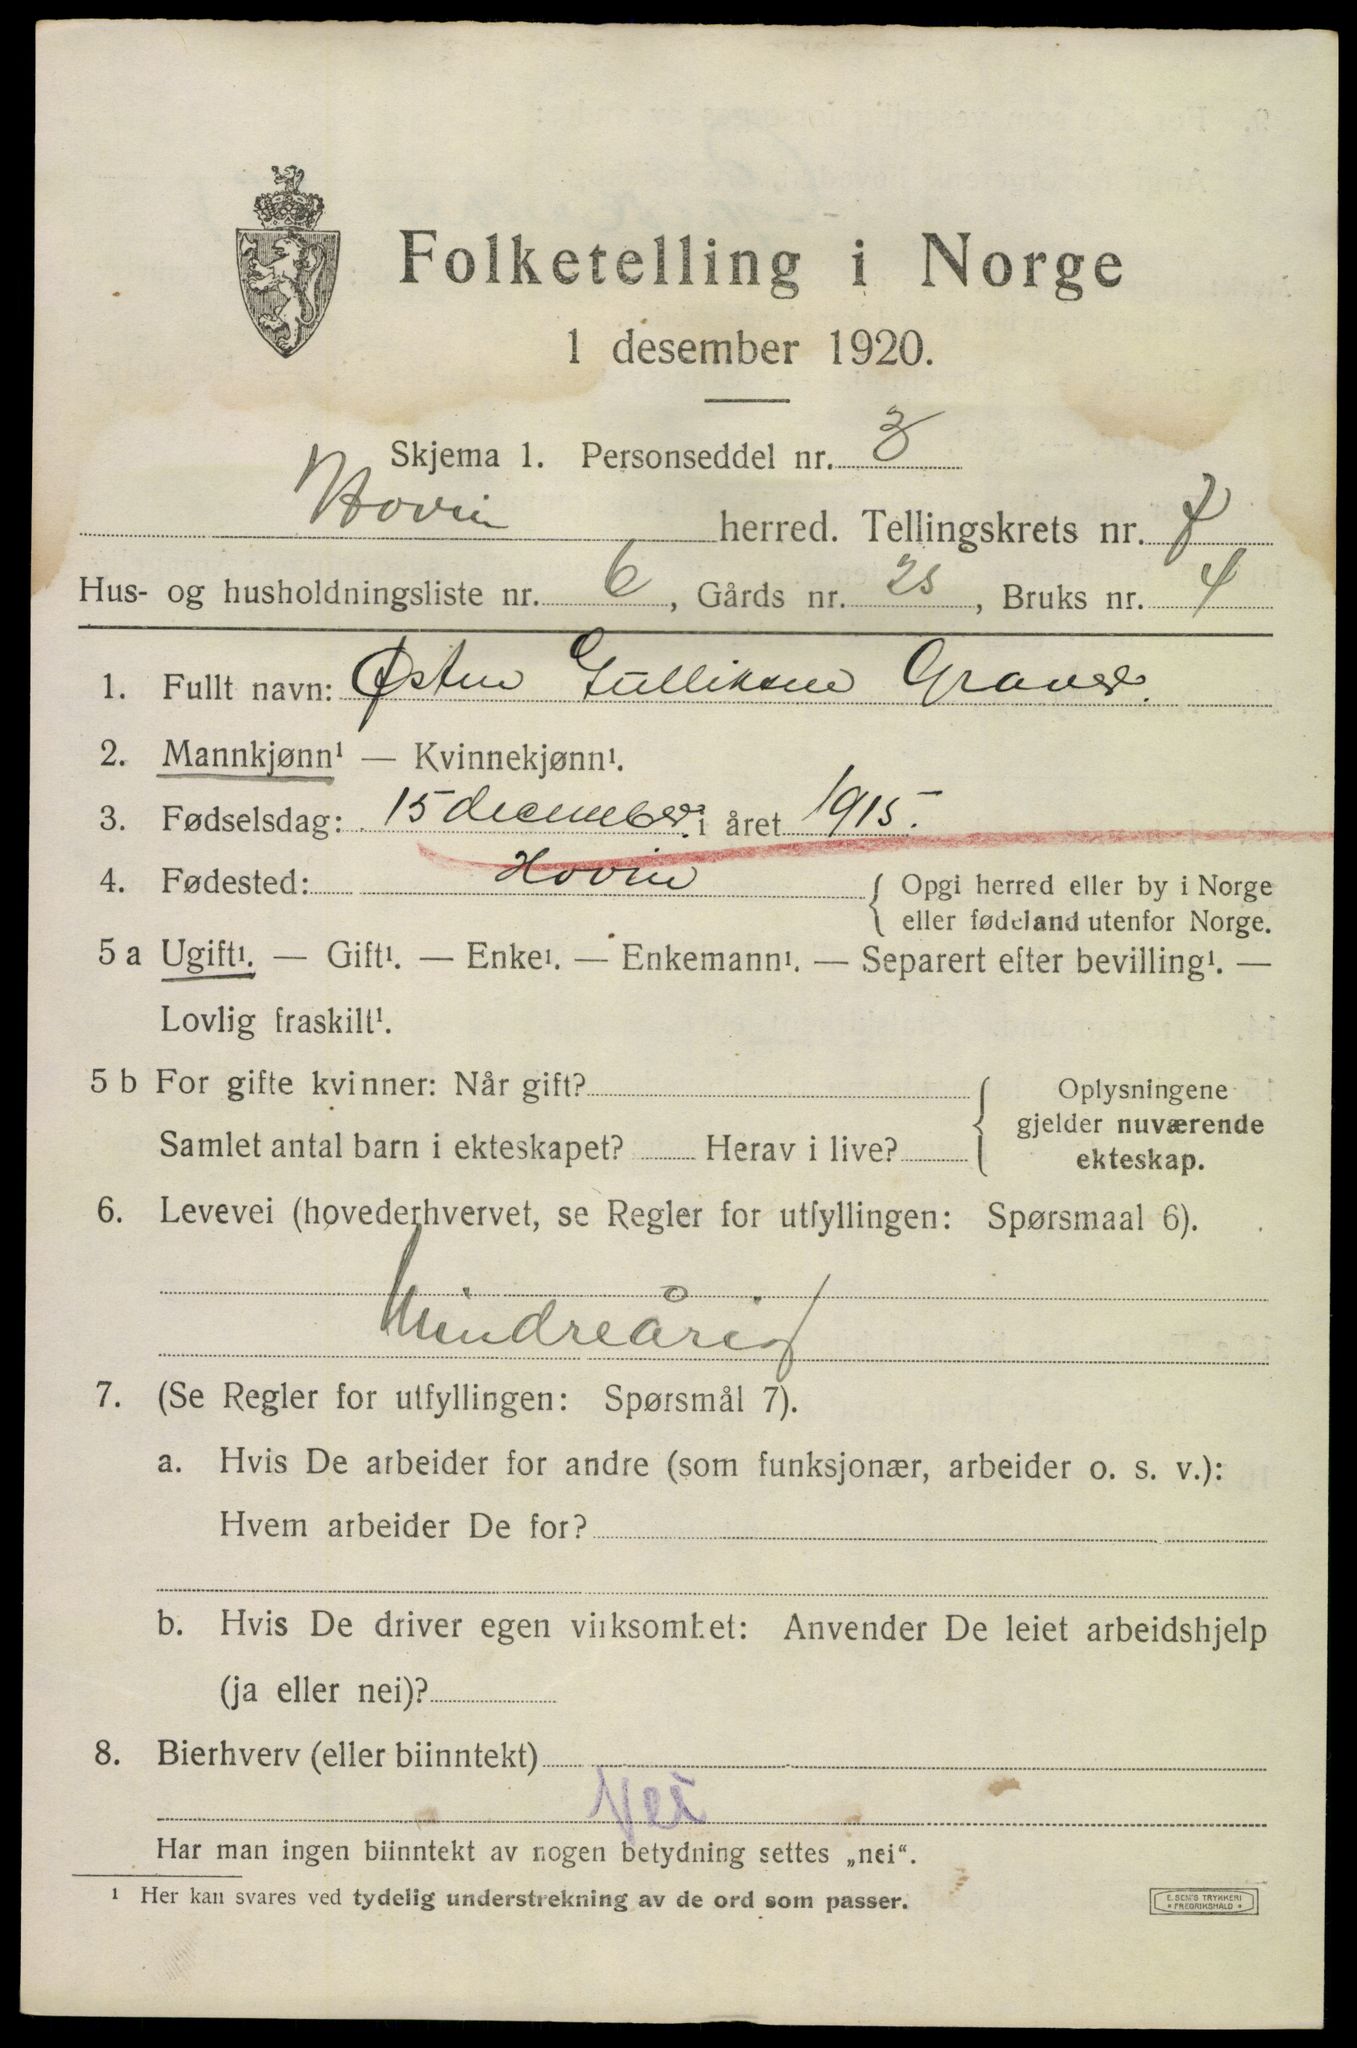 Folketelling i Norge
1 desember 1920.
Skjema 1. Personseddel nr. 3
Hovin herred. Tellingskrets nr. 7
Hus- og husholdningsliste nr. 6, Gårds nr. 25, Bruks nr. 4
1. Fullt navn: Østen Gulliksen Graver.
2. Mannkjønn¹ — Kvinnekjønn¹.
3. Fødselsdag: 15 december i året 1915.
4. Fødested: Hovin { Opgi herred eller by i Norge
eller fødeland utenfor Norge.
5 a Ugift¹. — Gift¹. — Enke¹. — Enkemann¹. — Separert efter bevilling¹. —
Lovlig fraskilt¹.
5 b For gifte kvinner: Når gift? { Oplysningene
gjelder nuværende
Samlet antal barn i ekteskapet? Herav i live? ekteskap.
6. Levevei (hovederhvervet, se Regler for utfyllingen: Spørsmaal 6).
Mindreårig
7. (Se Regler for utfyllingen: Spørsmål 7).
a. Hvis De arbeider for andre (som funksjonær, arbeider o. s. v.):
Hvem arbeider De for?
b. Hvis De driver egen virksomhet: Anvender De leiet arbeidshjelp
(ja eller nei)?
8. Bierhverv (eller biinntekt)
Nei
Har man ingen biinntekt av nogen betydning settes „nei“.
¹ Her kan svares ved tydelig understrekning av de ord som passer.
E. SEM'S TRYKKERI
* FREDRIKSHALD *